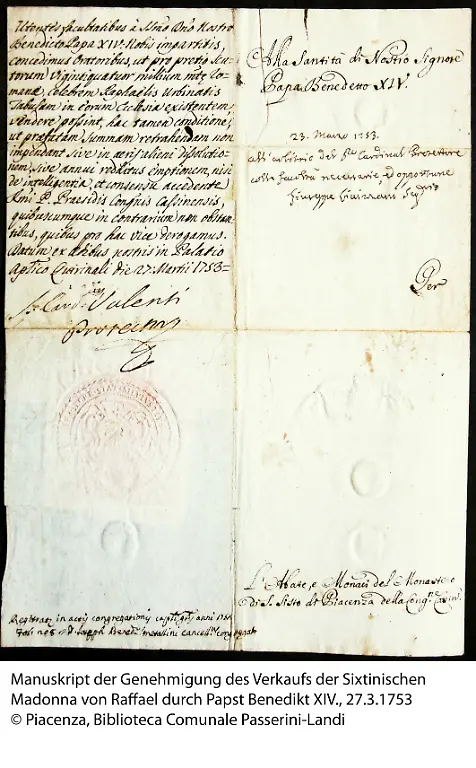 Utentes facultatibus à SSmo Dno Nostro
Benedicto Papa XIV. Nobis impartitis,
concedimus Oratoribus, ut pro pretio scu-
torum Viginti quatuor millium mtæ Ro-
manæ, celebrem Raphaelis Urbinatis
Tabulam in eorum Ecclesia existentem,
vendere possint, hac tamen conditione,
ut præfatam Summam retrahendam non
impendant sive in æris alieni dissolutio-
nem, sive annui redditus emptionem, nisi
de intelligentia et consensu accedente
Rmi P. Præsidis Congñis Casinensis,
quibuscumque in contrarium non obstan-
tibus, quibus pro hac vice derogamus.
Datum ex Ædibus nostris in Palatio
Aplico Quirinali die 27. Martii 1753=
Card. Valenti
Alla Santità di Nostro Signore
Papa Benedetto XIV.
23. Marzo 1753.
all'arbitrio del Sr. Cardinal Protettore
colle facoltà necessarie, ed opportune
Per
L'Abate, e Monaci del Monastero
di S. Sisto di Piacenza della Congne Casin.
Registrat. in actis congregationis
Manuskript der Genehmigung des Verkaufs der Sixtinischen
Madonna von Raffael durch Papst Benedikt XIV., 27.3.1753
© Piacenza, Biblioteca Comunale Passerini-Landi